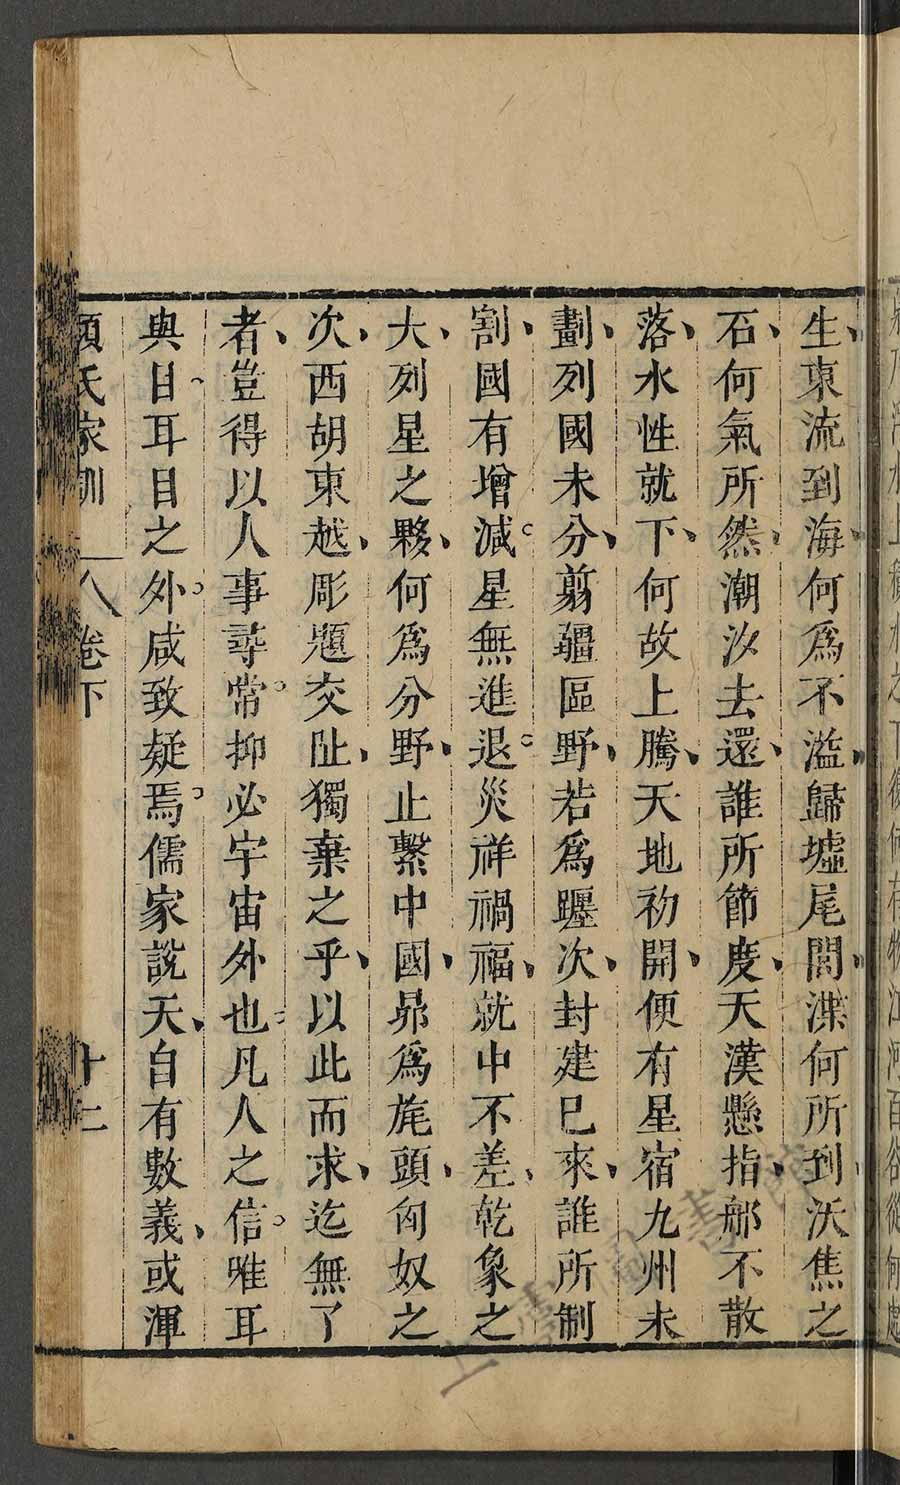 生東流到海何爲不溢歸墟尾閭渫何所到沃焦之
石何氣所然潮汐去還誰所節度天漢懸指那不散
落水性就下何故上騰天地初開便有星宿九州未
劃列國未分翦疆區野若爲躔次封建已來誰所制
割國有增減星無進退災祥禍福就中不差乾象之
大列星之夥何爲分野止繫中國昴爲旄頭匈奴之
次西胡東越彫題交阯獨棄之乎以此而求迄無了
者豈得以人事尋常抑必宇宙外也凡人之信唯耳
與目耳目之外咸致疑焉儒家說天自有數義或渾
顏氏家訓 卷下 十二